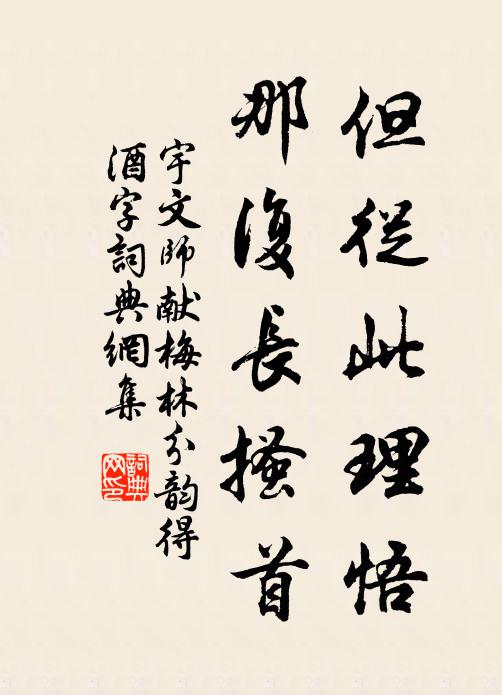 但從此理悟
那復長搔首
宇文師献梅林分韵得
酒字詞典網集
詞典
网印